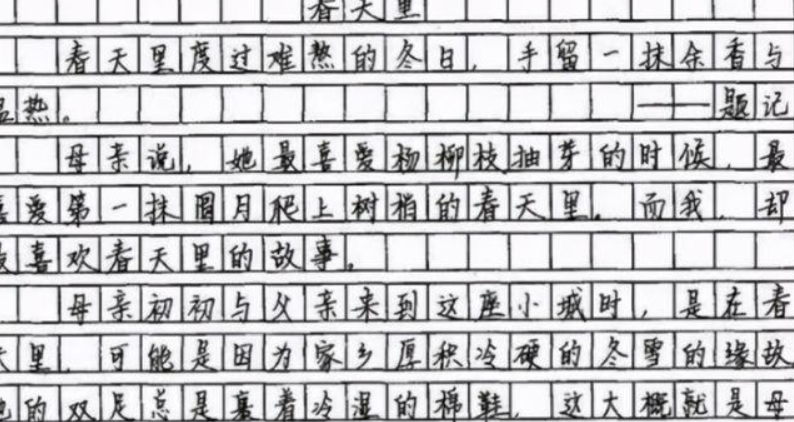 春天里
春天里度过难熬的冬日，手留一抹余香与
温热。 ——题记
母亲说，她最喜爱杨柳枝抽芽的时候，最
喜爱第一抹圆月爬上树梢的春天里。而我，却
最喜欢春天里的故事。
母亲初初与父亲来到这座小城时，是在春
天里，可能是因为家乡厚积冷硬的冬雪的缘故
她的双足总是裹着冷湿的棉鞋，这大概就是母